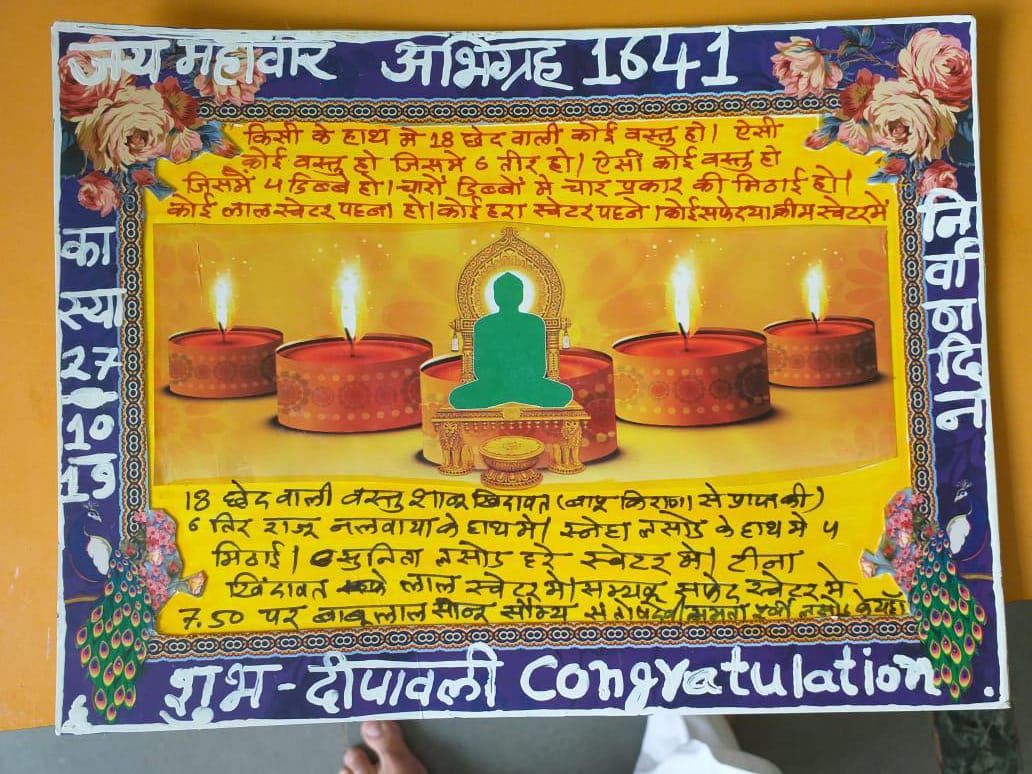 जय महावीर अभिग्रह 1641
किसी के हाथ मे 18 छेद वाली कोई वस्तु हो। ऐसी
कोई वस्तु हो जिसमे 6 तीर हो। ऐसी कोई वस्तु हो
जिसमें 4 डिब्बे हो। चारों डिब्बों मे चार प्रकार की मिठाई हो।
कोई लाल स्वेटर पहना हो। कोई हरा स्वेटर पहने। कोई सफेद या क्रीम स्वेटर में
का
स्या
27
10
19
निर्वाण दिन
18 छेद वाली वस्तु शालू खिंदावत (बापू किराणा से प्राप्त की)
6 तिर राजू नलवाया के हाथ मे। स्नेहा नसोड के हाथ मे 4
मिठाई। सुनिता नसोड हरे स्वेटर मे। टीना
खिंदावत लाल स्वेटर मे। सम्यक् सफेद स्वेटर मे
7.50 पर बाबूलाल सौम्य
शुभ - दीपावली Congratulation